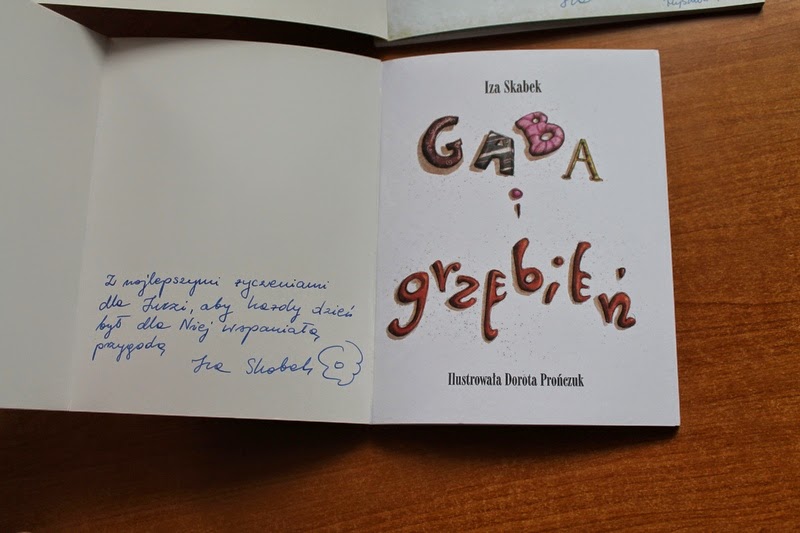 Z najlepszymi życzeniami
dla Juzi, aby każdy dzień
był dla Niej wspaniałą
przygodą
Iza Skabek
Iza Skabek
GABA
i
grzebień
Ilustrowała Dorota Prończuk